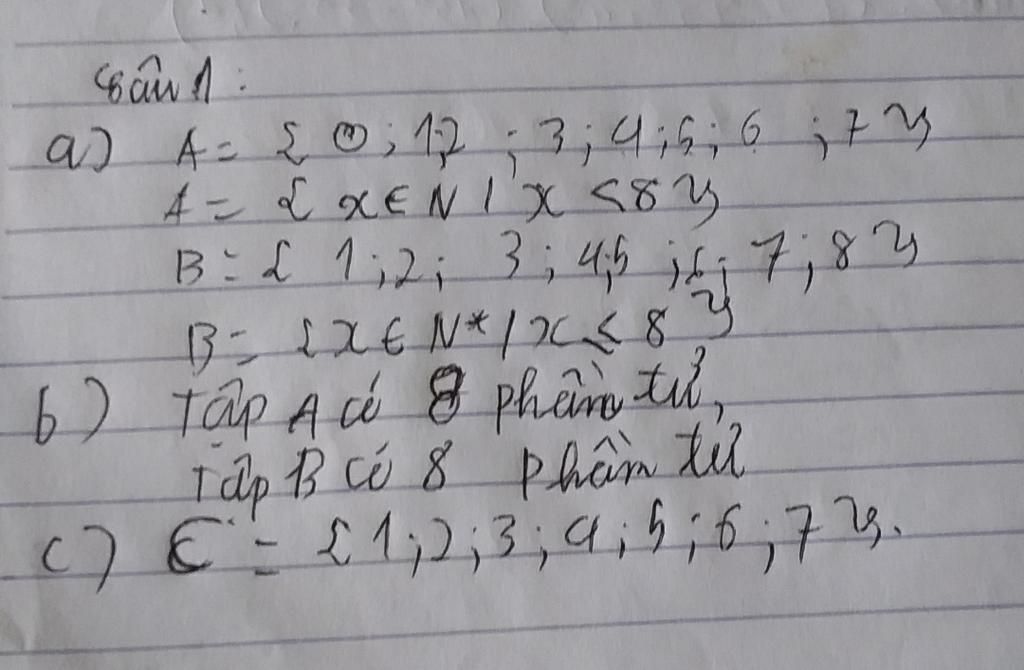 Câu 1:
a) A = { 0; 1; 2 ; 3; 4; 5; 6 ; 7 }
A = { x ∈ N | x < 8 }
B = { 1; 2; 3; 4; 5 ; 6; 7; 8 }
B = { x ∈ N* / x ≤ 8 }
b) Tập A có 8 phần tử,
Tập B có 8 phần tử
c) C = { 1; 2; 3; 4; 5; 6; 7 }.